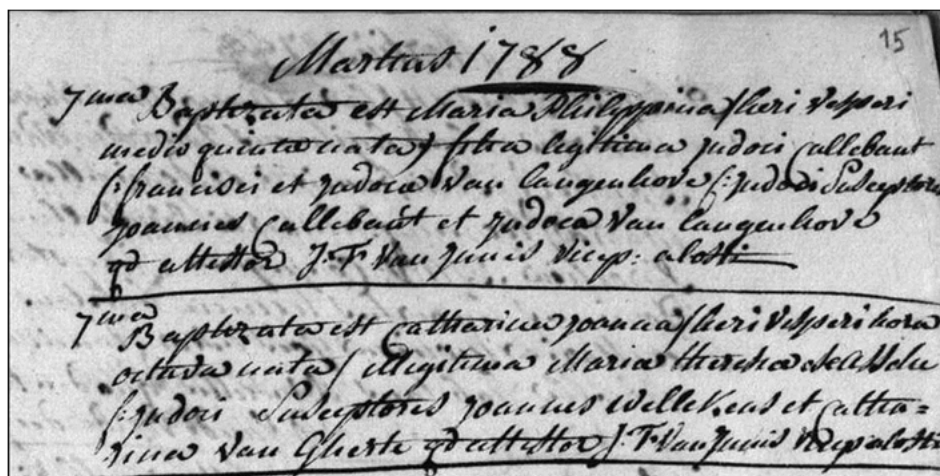 15
Martius 1788
7ma Baptizata est Maria Philippina /heri vesperi
medio quinta nata/ filia legitima judoci Callebaut
f: francisci et judoca van Langenhove f: judoci Susceptores
joannes Callebaut et judoca van Langenhove
qd attestor J: F: Van Junis vicep: alosti
7ma Baptizata est Catharina joanna /heri vesperi hora
octava nata/ illegitima Maria theresia de
f: judoci Susceptores joannes Wellekens et Catha=
rina van Gherte qd attestor J: F: Van Junis vicep alosti